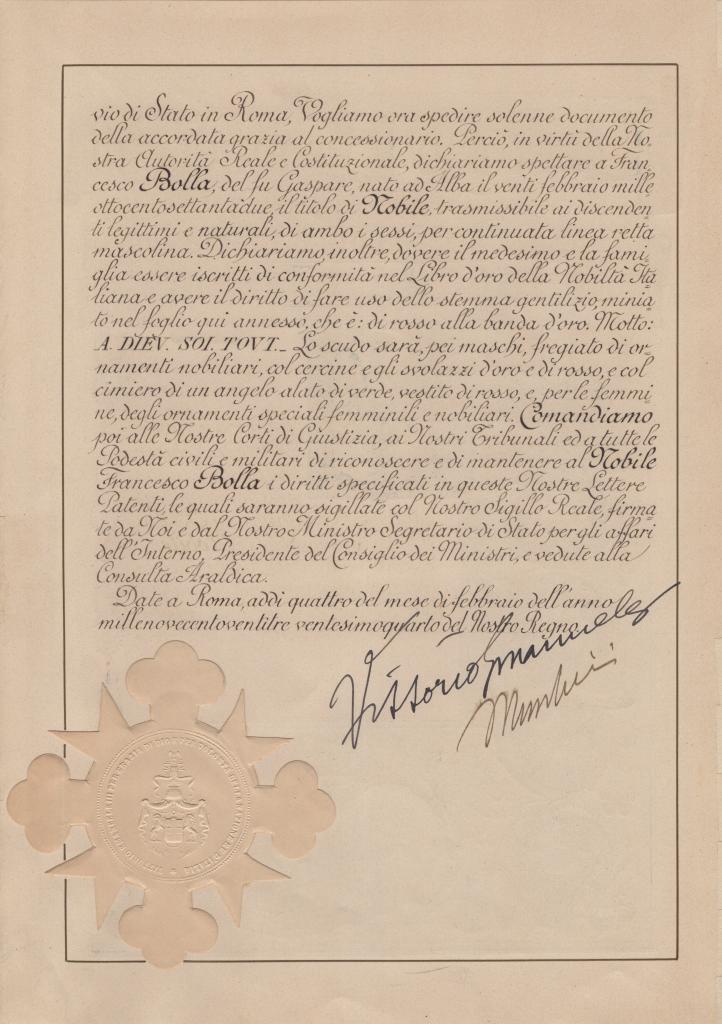 vio di Stato in Roma, Vogliamo ora spedire solenne documento
della accordata grazia al concessionario. Perciò, in virtù della No,
stra Autorità Reale e Costituzionale, dichiariamo spettare a Fran-
cesco Bolla, del fu Gaspare, nato ad Alba il venti febbraio mille
ottocentosettantadue, il titolo di Nobile, trasmissibile ai discenden-
ti legittimi e naturali, di ambo i sessi, per continuata linea retta
mascolina. Dichiariamo, inoltre, dovere il medesimo e la fami-
glia essere iscritti di conformità nel Libro d'oro della Nobiltà Ita-
liana e avere il diritto di fare uso dello stemma gentilizio, minia-
to nel foglio qui annesso, che è: di rosso alla banda d'oro. Motto:
A. DIEV. SOI. TOVT._ Lo scudo sarà, pei maschi, fregiato di or-
namenti nobiliari, col cercine e gli svolazzi d'oro e di rosso, e col
cimiero di un angelo alato di verde, vestito di rosso, e, per le femmi-
ne, degli ornamenti speciali femminili e nobiliari. Comandiamo
poi alle Nostre Corti di Giustizia, ai Nostri Tribunali ed a tutte le
Podestà civili e militari di riconoscere e di mantenere al Nobile
Francesco Bolla i diritti specificati in queste Nostre Lettere
Patenti, le quali saranno sigillate col Nostro Sigillo Reale, firma-
te da Noi e dal Nostro Ministro Segretario di Stato per gli affari
dell'Interno, Presidente del Consiglio dei Ministri, e vedute alla
Consulta Araldica.
Date a Roma, addì quattro del mese di febbraio dell'anno
millenovecentoventitre ventesimoquarto del Nostro Regno.
Vittorio Emanuele
Mussolini